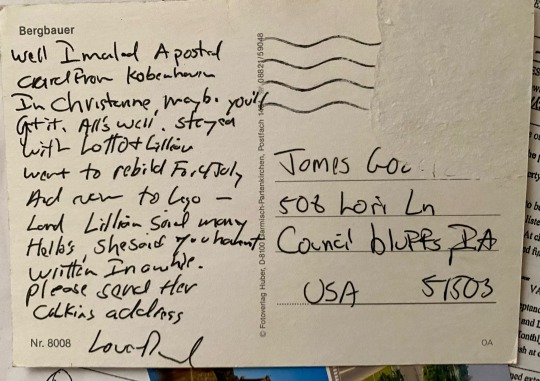 Bergbauer
Well I mailed A postal
Card From Kobenhavn
In Christenne, maybe you'll
Get it. All's well. stayed
with Lotto & Lillian
went to rebild For 4 July
And now to Lego –
Lord Lillian Said many
Hello's, she said you havent
written In awhile.
please send Her
Calkins address
Love
Nr. 8008
© Fotoverlag Huber, D-8100 Garmisch-Partenkirchen, Postfach 08821/59048
James
508 Lori Ln
Council bluffs, IA
USA 51503
OA